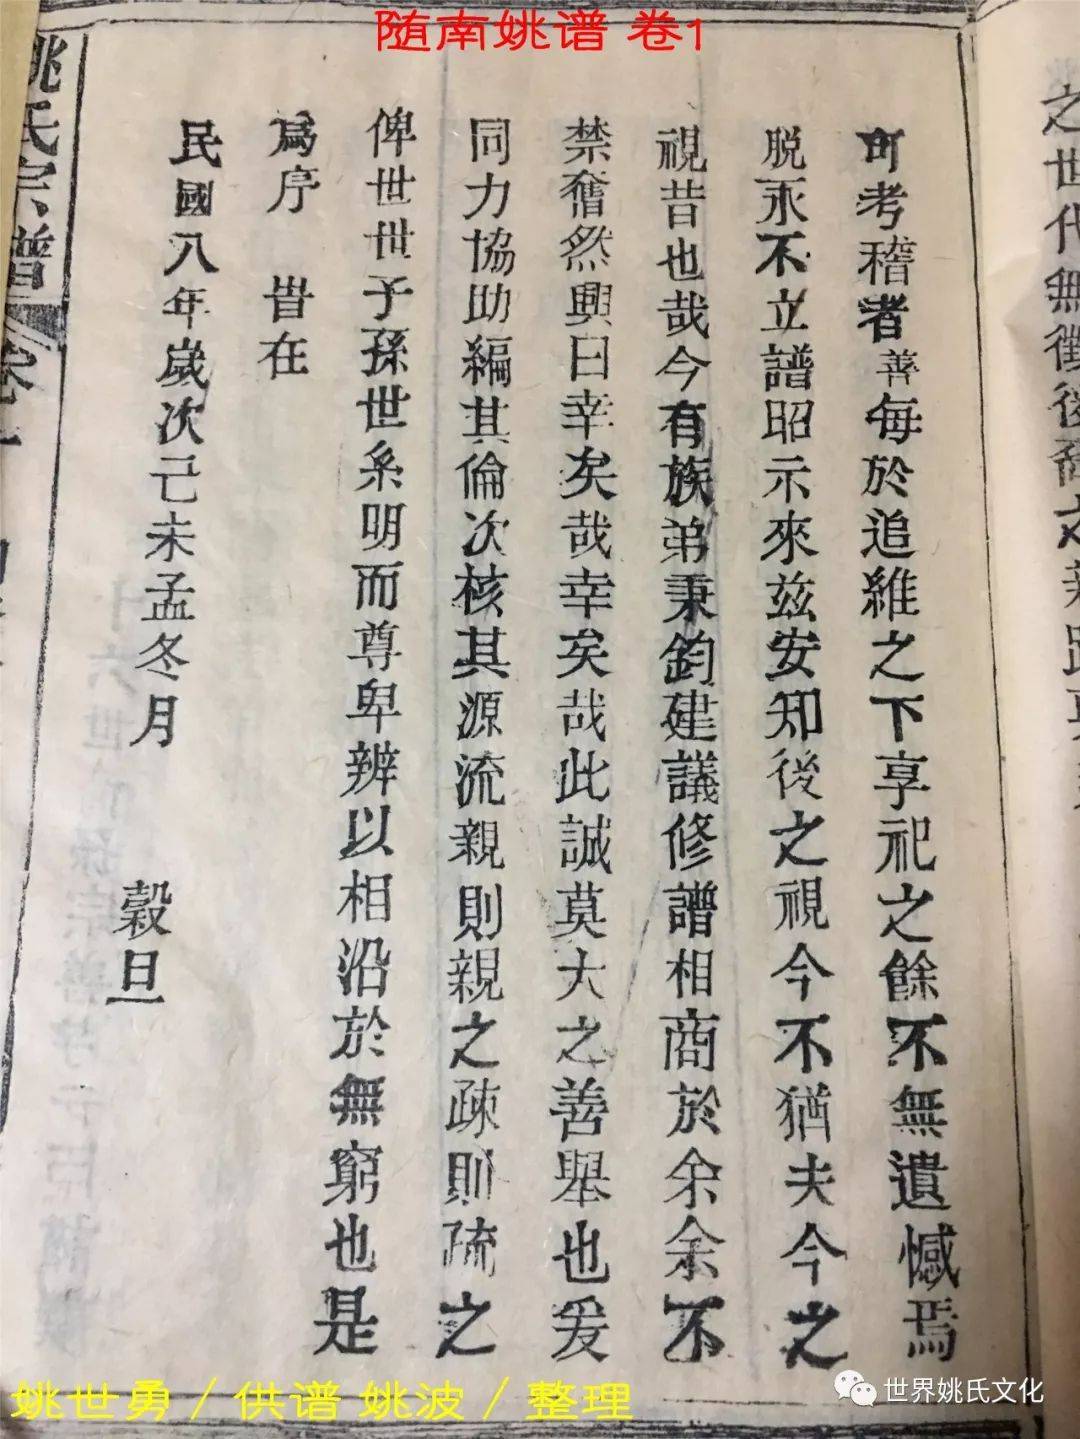 随南姚谱 卷1
之世代無徵後裔之
可考稽者善每於追維之下享祀之餘不無遺憾焉
脱永不立譜昭示來兹安知後之視今不猶夫今之
視昔也哉今有族弟秉鈞建議修譜相商於余余不
禁奮然興曰幸矣哉幸矣哉此誠莫大之善舉也爰
同力協助編其倫次核其源流親則親之疎則疏之
俾世世子孫世系明而尊卑辨以相沿於無窮也是
爲序 旹在
民國八年歲次己未孟冬月 穀旦
姚氏宗譜 卷一
姚世勇／供谱 姚波／整理
世界姚氏文化